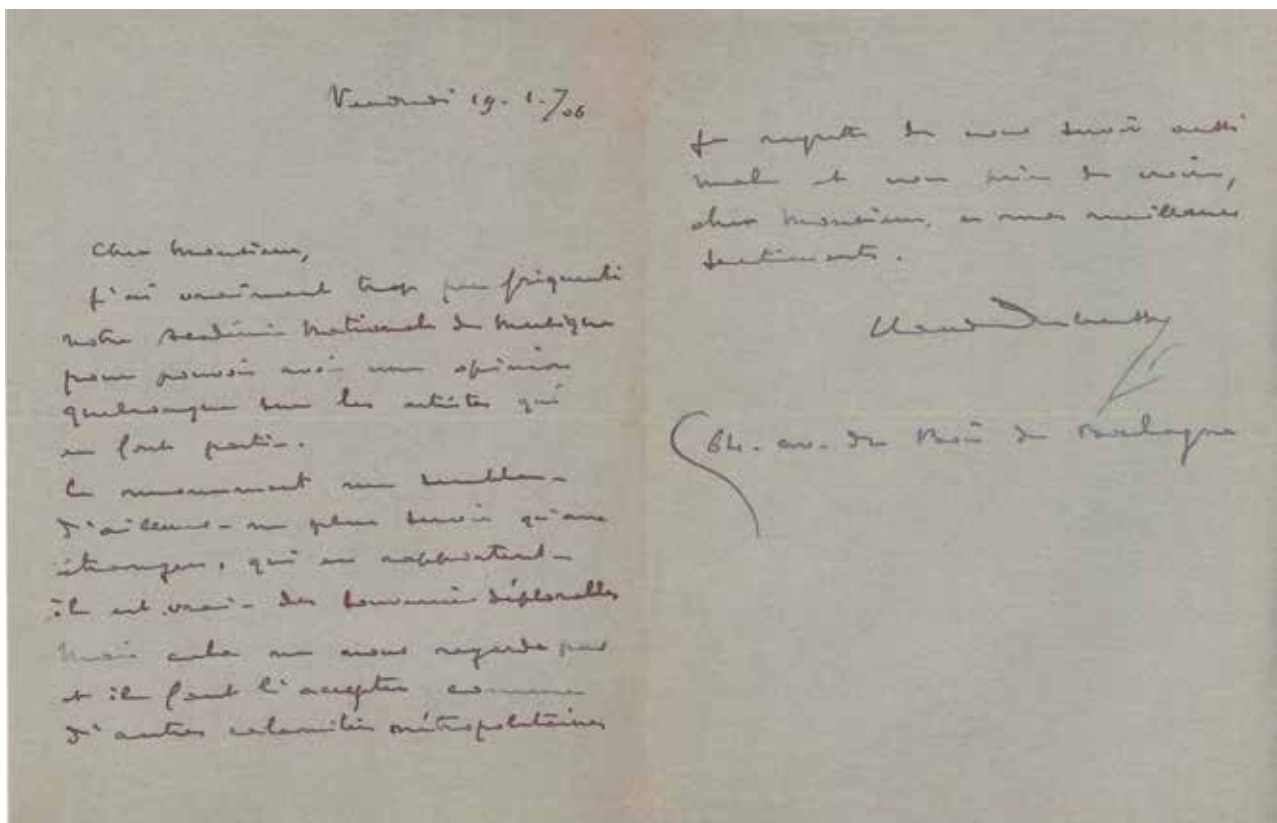 Vendredi 19-1-/06
Cher Monsieur,
J'ai vraiment trop peu fréquenté
notre Académie Nationale de Musique
pour pouvoir avoir une opinion
quelconque sur les artistes qui
en font partie.
Ce monument me semble -
d'ailleurs - ne plus servir qu'aux
étrangers, qui en rapportent -
il est vrai - des souvenirs déplorables
Mais cela ne nous regarde pas
et il faut l'accepter comme
d'autres calamités métropolitaines
Je regrette de vous servir aussi
mal et vous prie de croire,
cher Monsieur, à mes meilleurs
sentiments.
Claude Debussy
64. av. du Bois de Boulogne